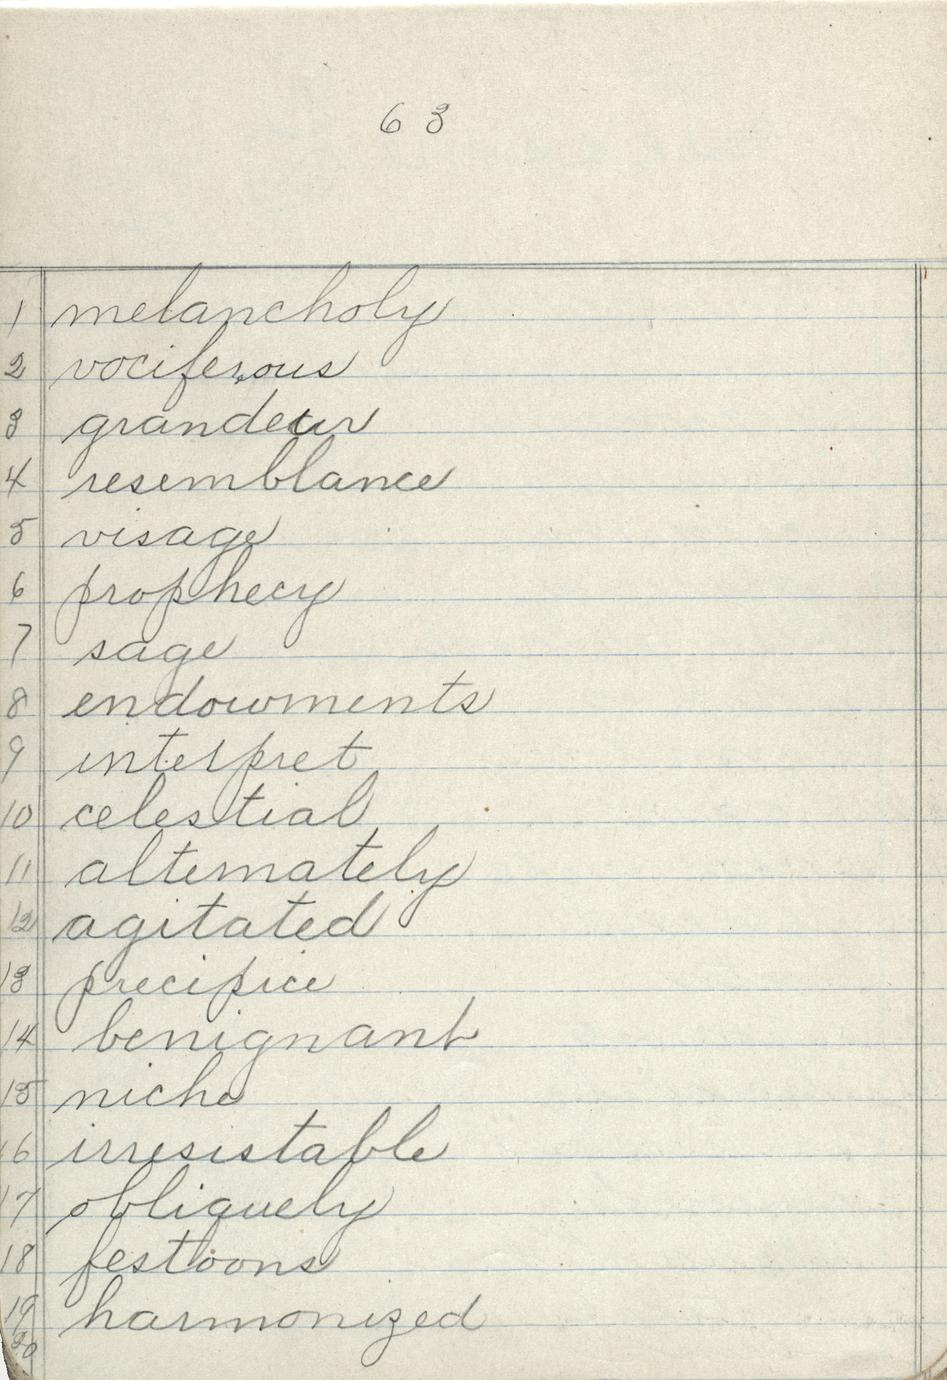 63
1 melancholy
2 vociferous
3 grandeur
4 resemblance
5 visage
6 prophecy
7 sage
8 endowments
9 interpret
10 celestial
11 alternately
12 agitated
13 precipice
14 benignant
15 niche
16 irresistable
17 obliquely
18 festoons
19 harmonized
20